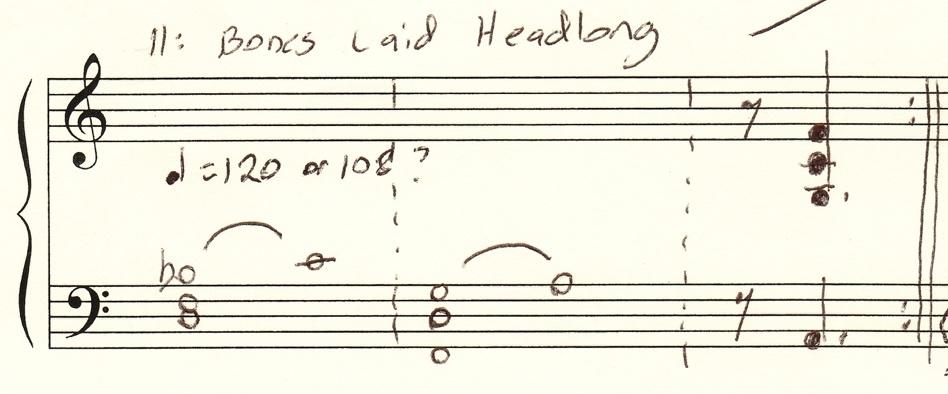 11: Bones Laid Headlong
♩=120 or 108 ?